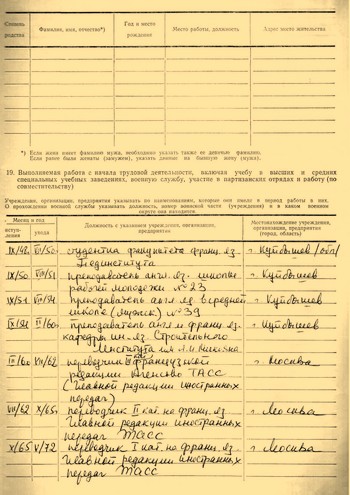 Степень родства
Фамилия, имя, отчество*)
Год и место рождения
Место работы, должность
Адрес места жительства
*) Если жена имеет фамилию мужа, необходимо указать также ее девичью фамилию.
Если ранее были женаты (замужем), указать данные на бывшую жену (мужа).
19. Выполняемая работа с начала трудовой деятельности, включая учебу в высших и средних
специальных учебных заведениях, военную службу, участие в партизанских отрядах и работу (по
совместительству)
Учреждения, организации, предприятия указывать по наименованию, которые они имели в период работы в них.
О прохождении военной службы указывать должность, номер воинской части (учреждения) и в каком военном
округе они находятся.
Месяц и год
вступления
ухода
Должность с указанием учреждения, организации,
предприятия
Местонахождение учреждения,
организации, предприятия
(город, область)
студентка факультета франц. яз. г. Куйбышев
Пединститута
IX/50 преподаватель англ. яз. школы г. Куйбышев
рабочей молодежи № 23
IX/51 преподаватель англ. яз. в средней г. Куйбышев
школе № 39
преподаватель англ и франц. яз. г. Куйбышев
кафедры ин. яз. Строительного
Института им.
VII/62 переводчик французской г. Москва
редакции Агенство ТАСС
(Главной редакции иностранных
передач)
VII/62 X/65 переводчик II кат. по франц. яз. г. Москва
Главной редакции иностранных
передач ТАСС
X/65 V/72 переводчик I кат. по франц. яз. г. Москва
Главной редакции иностранных
передач ТАСС